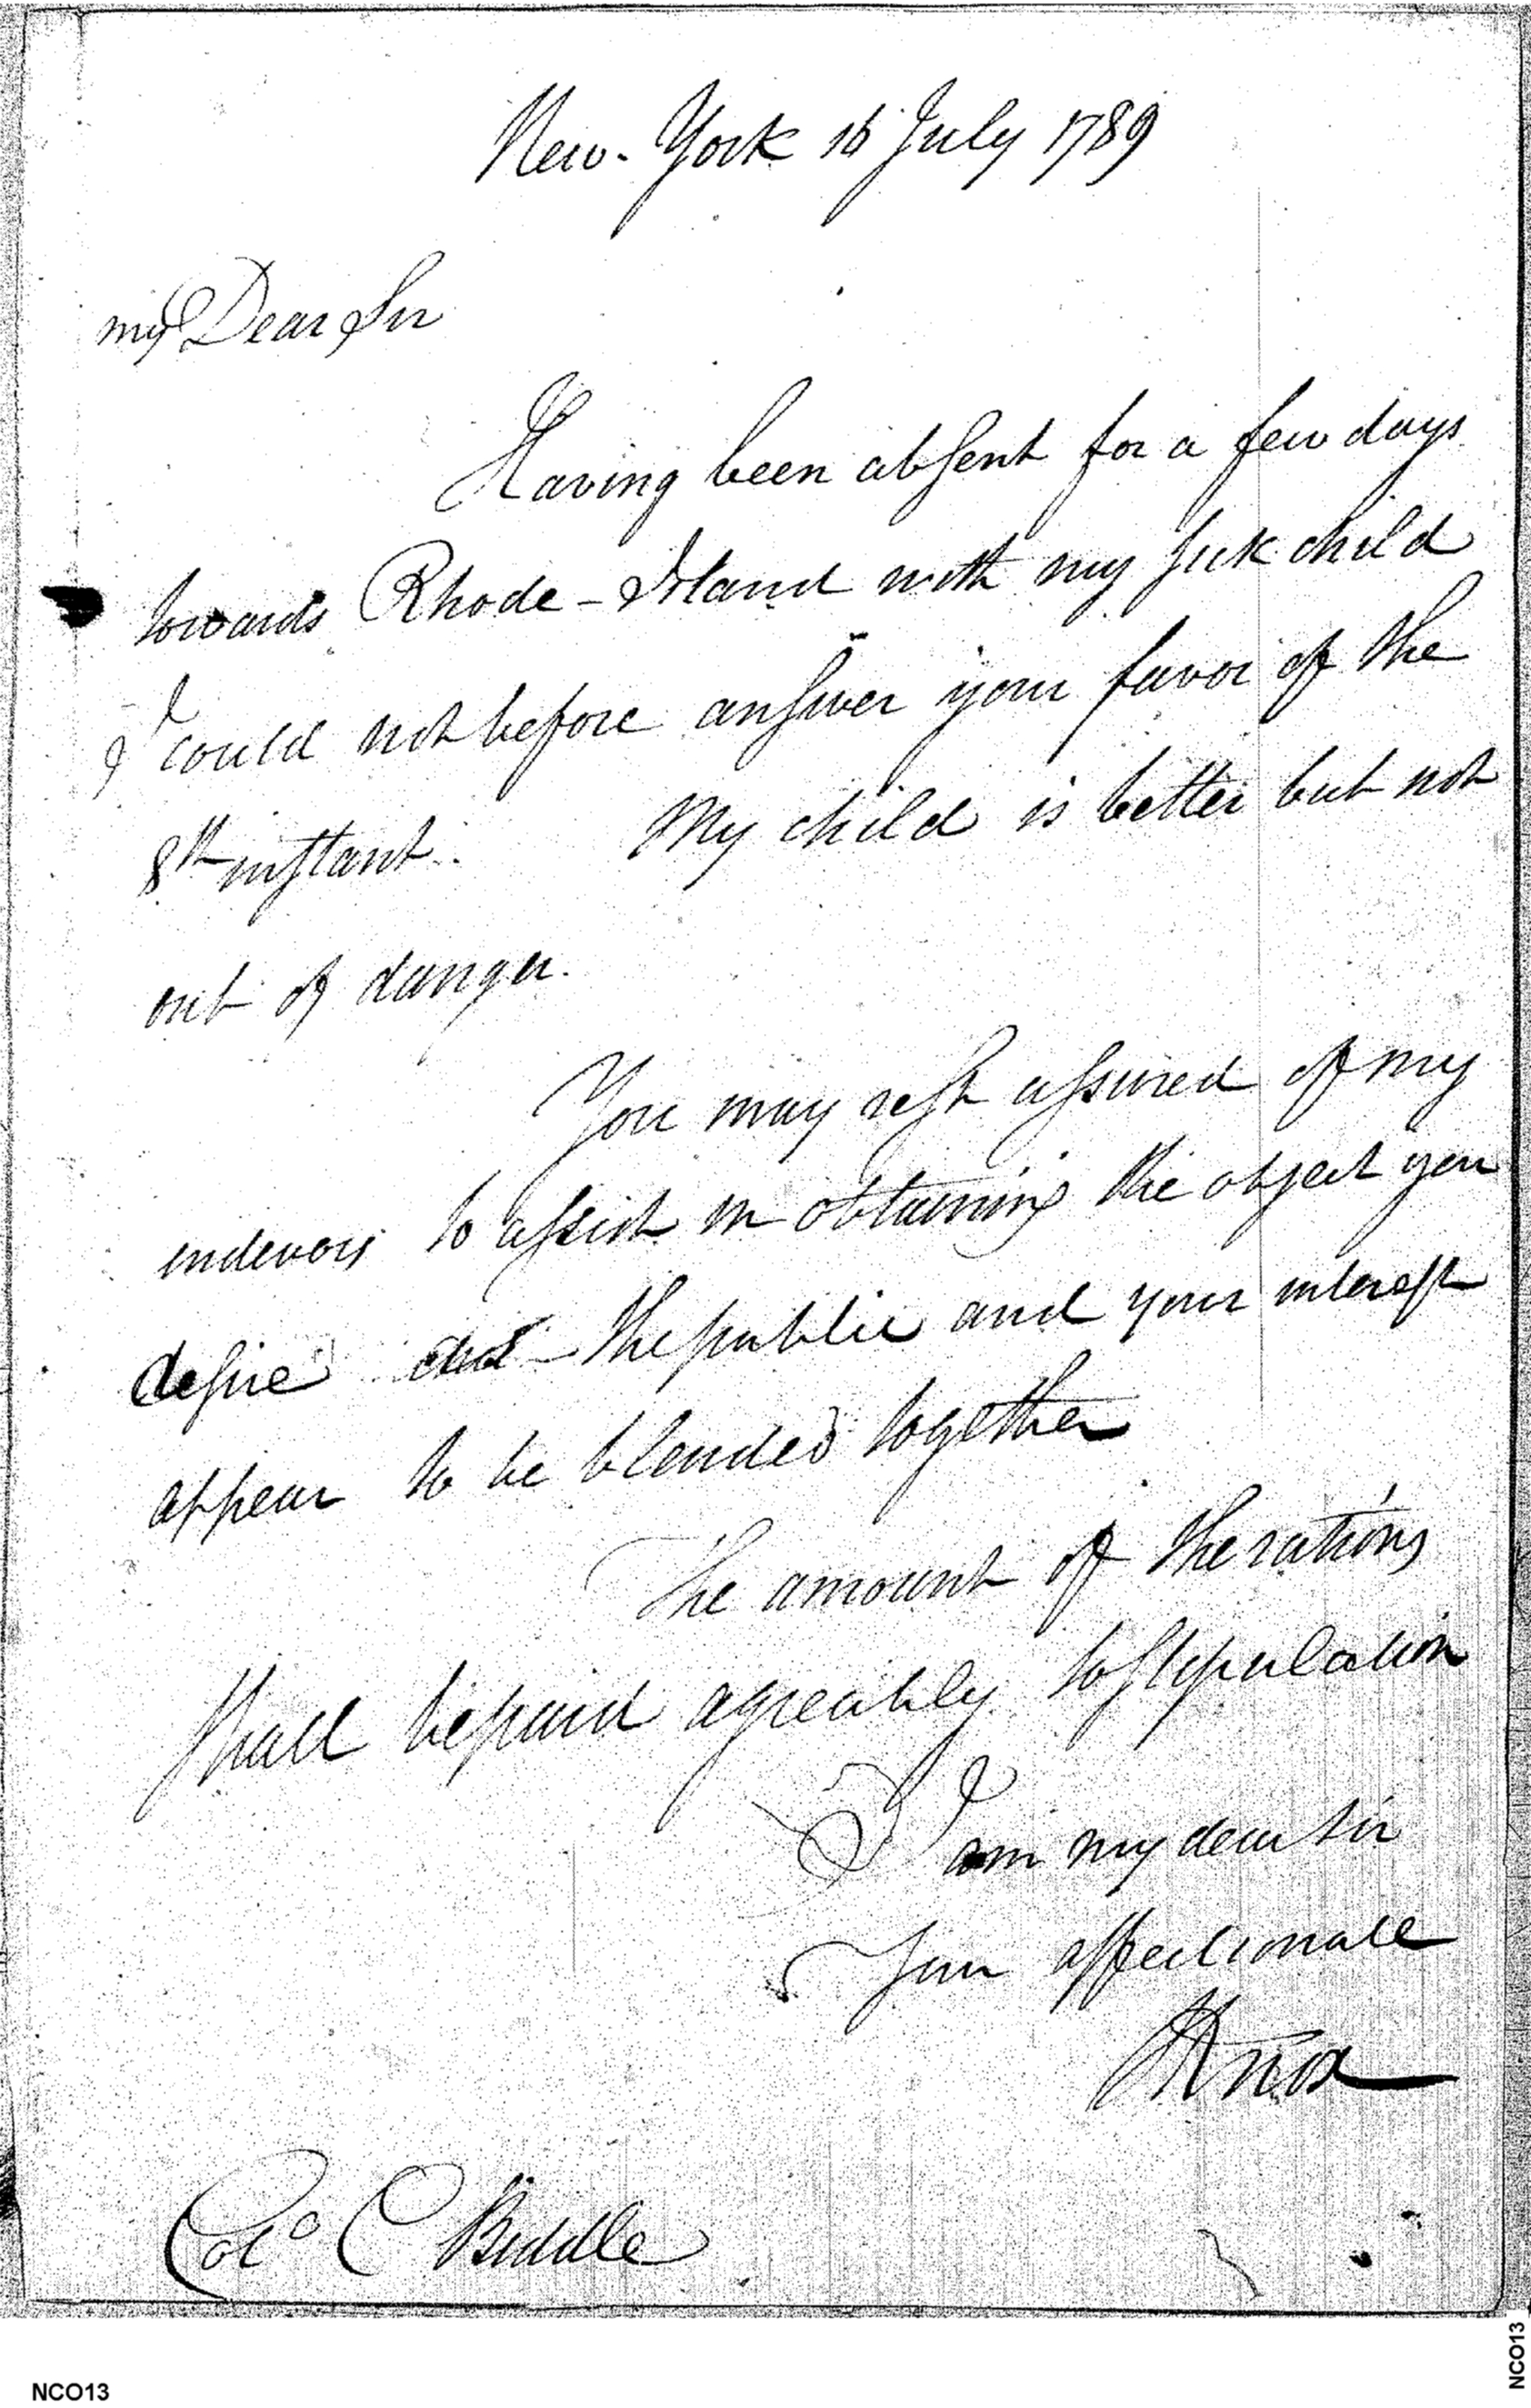 New-York 16 July 1789
my Dear Sir
Having been absent for a few days
towards Rhode-Island with my sick child
I could not before answer your favor of the
8th instant. My child is better but not
out of danger.
You may rest assured of my
endevors to assist in obtaining the object you
desire the public and your interest
appear to be blended together
The amount of the rations
shall be paid agreably to stipulation
I
am my dear sir
Your affectionate
HKnox
Colo C Biddle
NCO13
NCO13